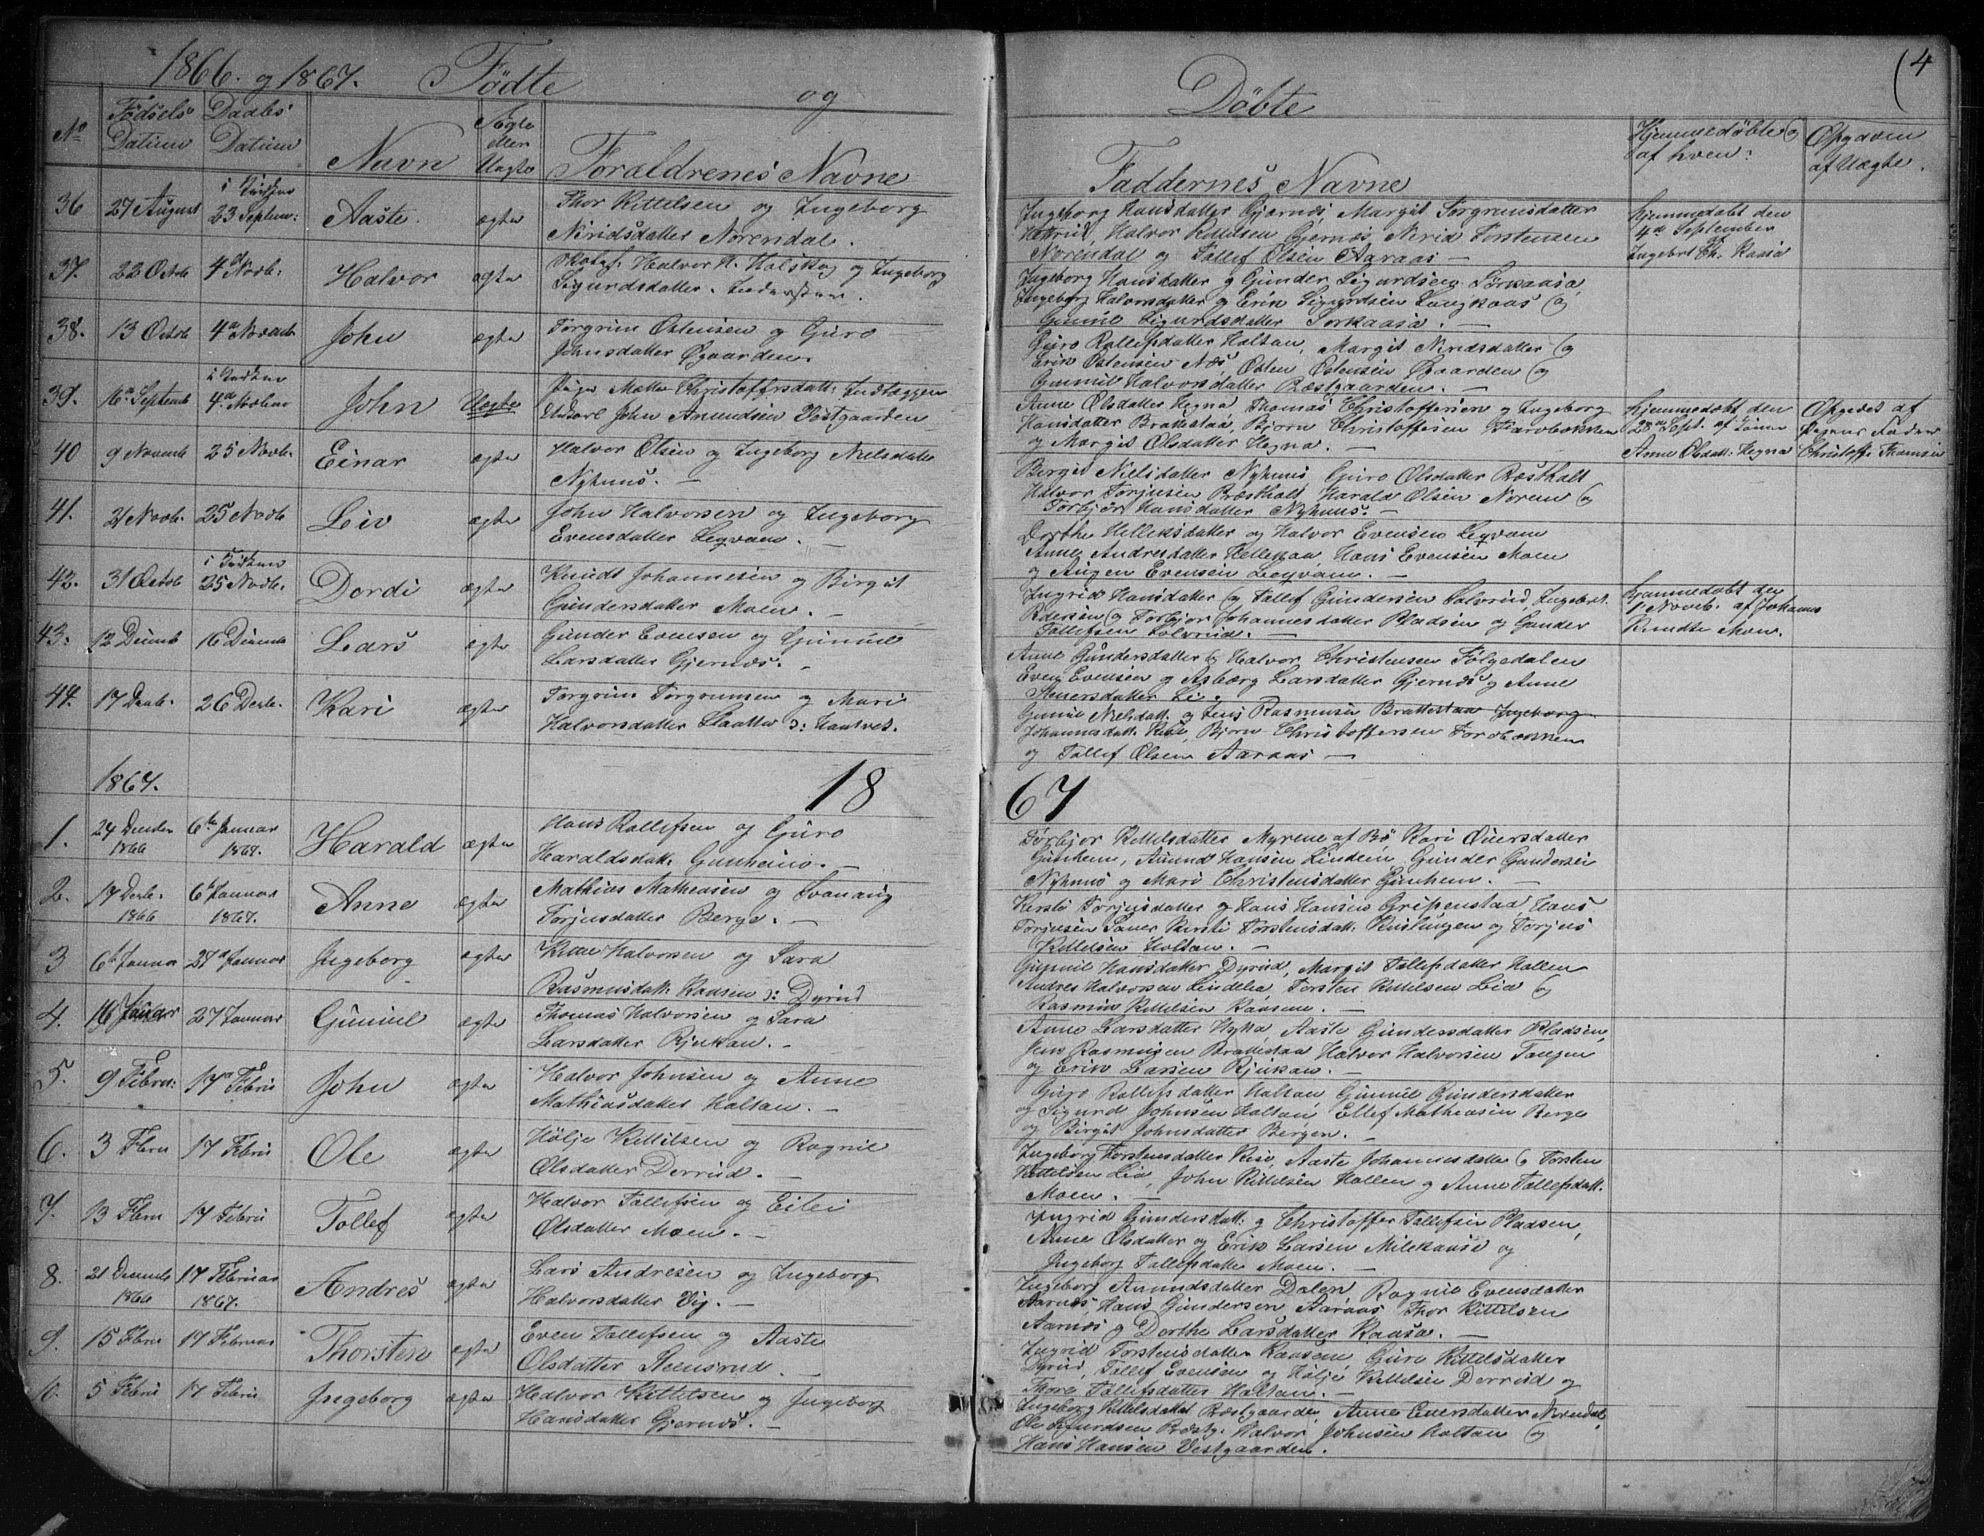 1866. og 1867. Fødte og Døbte (4
No Fødsels Datum Daabs Datum Navn Ægte eller Uægte Forældrenes Navne Faddernes Navne Hjemmedøbte og af hvem: Opgaven af Uægte.
36 27 August i Kirken 23 Septem: Aaste. ægte Thor Kittelsen og Ingeborg
Neridsdatter Norendal.
Ingeborg Hansdatter Gjernæs, Margit Torgrimsdatter
Halvor Kittilsen Gjernæs, Nerid Torstensen
Norendal og Tollef Olsen Aaraas —
Hjemmedøbt den
4de September
Ingebret Raasa
37. 22 Octob 4de Novb: Halvor ægte Halvor H. Halskog og Ingeborg
Sigurdsdatter
Ingeborg Hansdatter og Gunder Sigurdsen Torkaasa,
Ingeborg Halvorsdatter og Erik Sigurdsen Langkaas og
Gunnil Sigurdsdatter Torkaasa. —
38. 13 Octob 4de Novemb John ægte Torgrim Ostensen og Guro
Johnsdatter Øgaarden.
Guro Rollefsdatter Holtan, Margit Niridsdatter og
Erik Ostensen Næs, Osten Ostensen Øgaarden og
Gunnil Halvorsdatter Ræstgaarden. —
39. 16de Septemb i Kirken 4de Novber John Uægte Pige Mette Christoffersdatt:
Ungkarl John Amundsen Vestgaarden
Anne Olsdatter Hegna, Thomas Christoffersen og Ingeborg
Hansdatter Brattestaa, Bjørn Christoffersen
og Margit Olsdatter Hegna. —
Hjemmedøbt den
28de Sept. af
Anne Olsdatt: Hegna
Opgivet af
Pigens Fader
Christoff: Thomsen
40 9 Novemb 25 Novb. Einar ægte Halvor Olsen og Ingeborg Nielsdatter
Nyhuus. —
Birgit Nielsdatter Nyhuus, Guro Olsdatter Ræsthalt
Halvor Torjusen Ræsthalt, Harald Olsen Norem og
Torbjør Hansdatter Nyhuus. —
41. 21 Novb. 25 Novb Leiv ægte John Halvorsen og Ingeborg
Evensdatter Legvam. —
Dorthe Helleksdatter og Halvor Evensen Legvam
Anne Andresdatter Hans Evensen Moen
og Augen Evensen Legvam. —
42. 31 Octob i Kirken 25 Novb. Dordi ægte Knudt Johannesen og Birgit
Gundersdatter Moen. —
Ingrid Hansdatter og Tollef Gundersen Solvrud, Ingebret
Pedersen og Torbjør Johannesdatter Pladsen og Gunder
Tollefsen Solvrud. —
Hjemmedøbt den
1 Novb. af Johannes
Knudts: Moen.
43. 12 Decemb 16 Decemb Lars ægte Gunder Evensen og Gunnil
Larsdatter Gjernæs. —
Anne Gundersdatter og Halvor Christensen Følgedalen
Even Evensen og Asbørg Larsdatter Gjernæs og Anne
Stenersdatter Li
44. 17 Decb. 26 Decb. Kari ægte Torgrim Torgrimsen og Mari
Halvorsdatter Slaatta
Gunnil Nielsdatt. og Jens Rasmusen Brattestaa Ingeborg
Johannesdatt. Rue, Bjørn Christoffersen
og Tollef Olsen Aaraas —
1867. 18 67
1. 24 Decber 1866 6te Januar 1867. Harald ægte Hans Rollefsen og Guro
Haraldsdatt. Gunheim. —
Torbjør Kittelsdatter Myrene af Bø Kari Øversdatter
Gunhem, Amund Hansen Lindem, Gunder Gundersen
Nyhuus og Mari Christensdatter Gunhem. —
2. 17 Decb. 1866 6te Januar 1867. Anne ægte Mathias Matheasen og Svanaug
Torjusdatter Berge. —
Kersti Torjusdatter og Hans Hansen Gripenstaa, Hans
Torjusen Saner, Kersti Torstensdatt. og Torjus
Kittelsen Holtan. —
3 6te Januar 27de Januar Ingeborg ægte Halvorsen og Sara
Rasmusdatt. Raasen d: Dyrud
Gunnil Hansdatter Dyrud, Margit Tollefsdatter Hollen
Andres Halvorsen Lindelia, Torsten Kittelsen Lia og
Rasmus Kittilsen Raasen. —
4. 16 Januar 27 Januar Gunnil ægte Thomas Halvorsen og Sara
Larsdatter Rjukan. —
Anne Larsdatter Aaste Gundersdatter Pladsen,
Jens Rasmussen Brattestaa Halvor Halvorsen Tangen
og Erik Larsen Rjukan. —
5. 9 Febru: 17de Febru John ægte Halvor Johnsen og Anne
Mathiasdatter Holtan. —
Guro Rollefsdatter Holtan Gunnil Gundersdatter
og Sigurd Johnsen Holtan Ellef Matheasen Berge
og Birgit Johnsdatter Bergen. —
6. 3 Fbru 17 Febru Ole ægte Hølje Kittilsen og Ragnil
Olsdatter Dorrud. —
Ingeborg Torstensdatter Aaste Johannesdatter og Torsten
Kittelsen Lia, John Kittilsen Hollen og Anne Tollefsdatt.
Moen. —
7. 13 Fbru 17 Febru Tollef ægte Halvor Tollefsen og Eilei
Olsdatter Moen. —
Ingrid Gundersdatt: og Christoffer Tollefsen Pladsen,
Anne Olsdatter og Erik Larsen Milekaase og
Ingeborg Tollefsdatter Moen. —
8. 21 Decemb 1866 17 Februar 1867. Andres ægte Lars Andresen og Ingeborg
Halvorsdatter Vig. —
Ingeborg Amundsdatter Dalen Ragnil Evensdatter
Aarnæs Hans Gundersen Aaraas Thor Kittilsen
Aarnæs og Dorthe Larsdatter Raasa. —
9. 15 Fbru 17 Februar Thorsten ægte Even Tollefsen og Aaste
Olsdatter Stensrud. —
Ingrid Torstensdatter Raasen Guro Kittelsdatter
Dyrud, Tollef Evensen og Hølje Kittelsen Dorrud og
Thora Tollefsdatter Holtan. —
10. 5 Febru 17 Febru Ingeborg ægte Halvor Kittelsen og Ingeborg
Hansdatter Gjernæs. —
Ingeborg Kittelsdatter Ræstgaarden, Anne Eversdatter Norendal,
Ole Sjurdsen Ræstg. Halvor Johnsen Holtan og
Hans Hansen Vestgaarden.